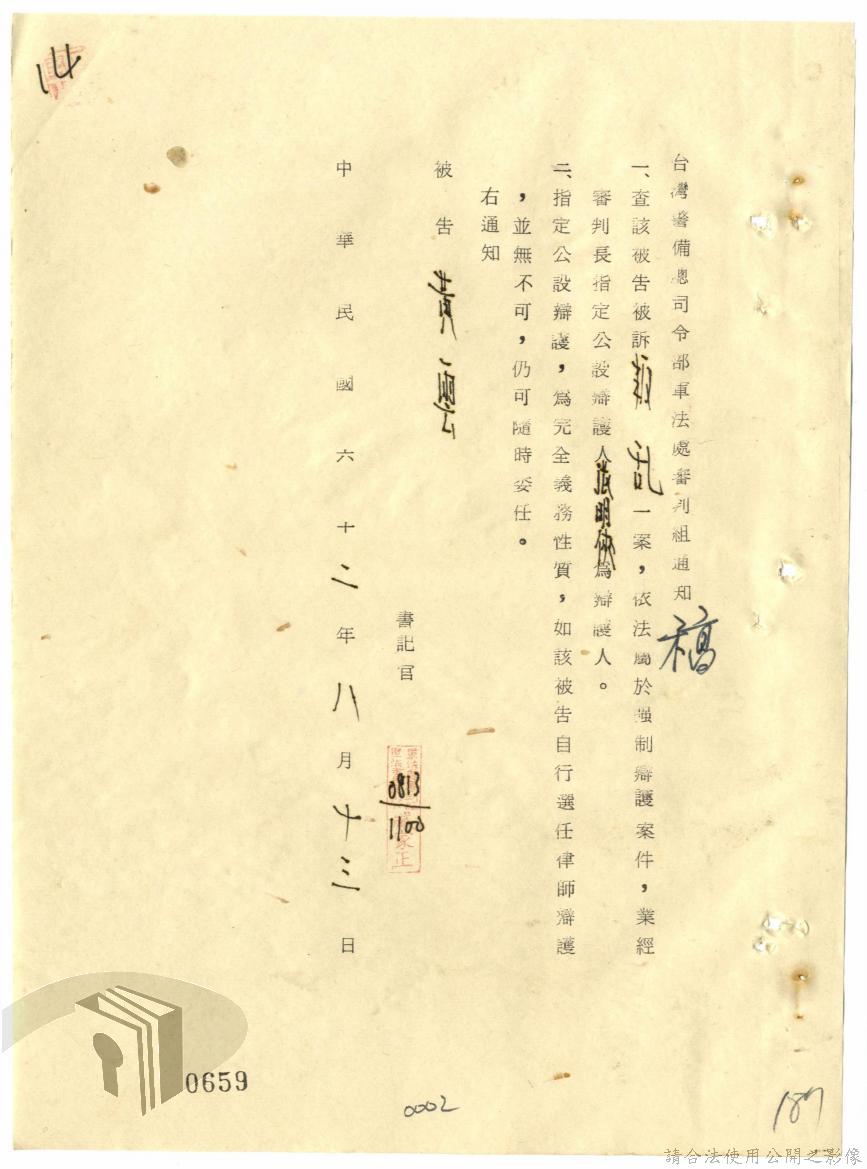 台灣警備總司令部軍法處審判組通知 稿
一、查該被告被訴叛乱一案，依法屬於强制辯護案件，業經
審判長指定公設辯護人張明俠爲辯護人。
二、指定公設辯護，爲完全義務性質，如該被告自行選任律師辯護
，並無不可，仍可隨時委任。
右通知
被告 黃一雲
書記官
0813
1100
中華民國六十二年八月十三日
14
0659
0002
187
請合法使用公開之影像